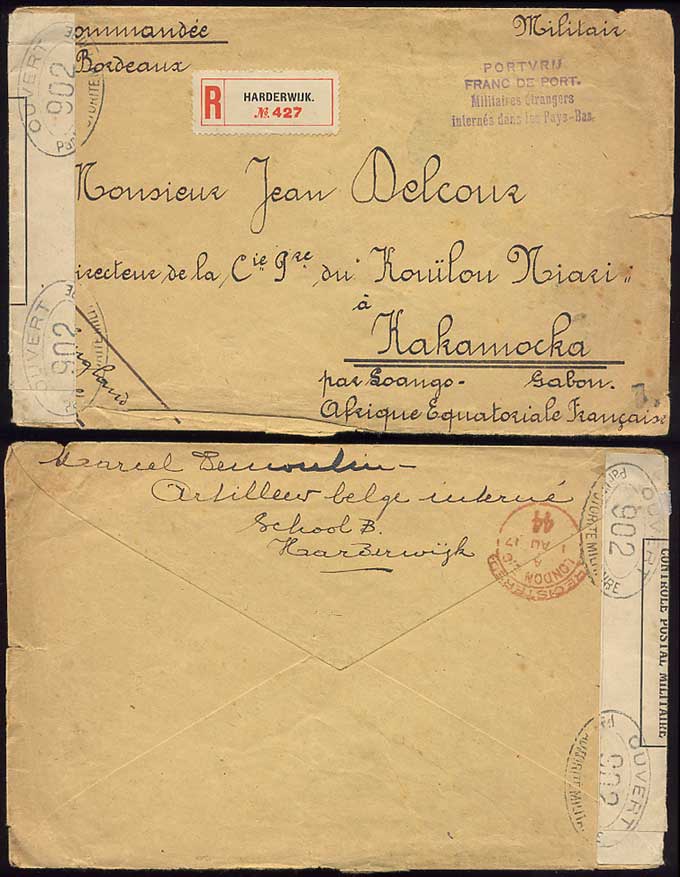 commandée
Militair
Bordeaux
PORTVRIJ
FRANC DE PORT.
Militaires étrangers
internés dans les Pays-Bas.
R
HARDERWIJK.
№ 427
OUVERT
902
Monsieur Jean Delcour
irecteur de la Cie Pre du Kouïlou Niari
à
Kakamocka
par Loango - Gabon.
Afrique Equatoriale Française
OUVERT
902
England
7.
Marcel Demoulin
Artilleur belge interné
School B.
Harderwijk
44
1 AU 17
A
REGISTERED
LONDON
OUVERT
902
AUTORITE MILITAIRE
CONTROLE POSTAL MILITAIRE
OUVERT
902